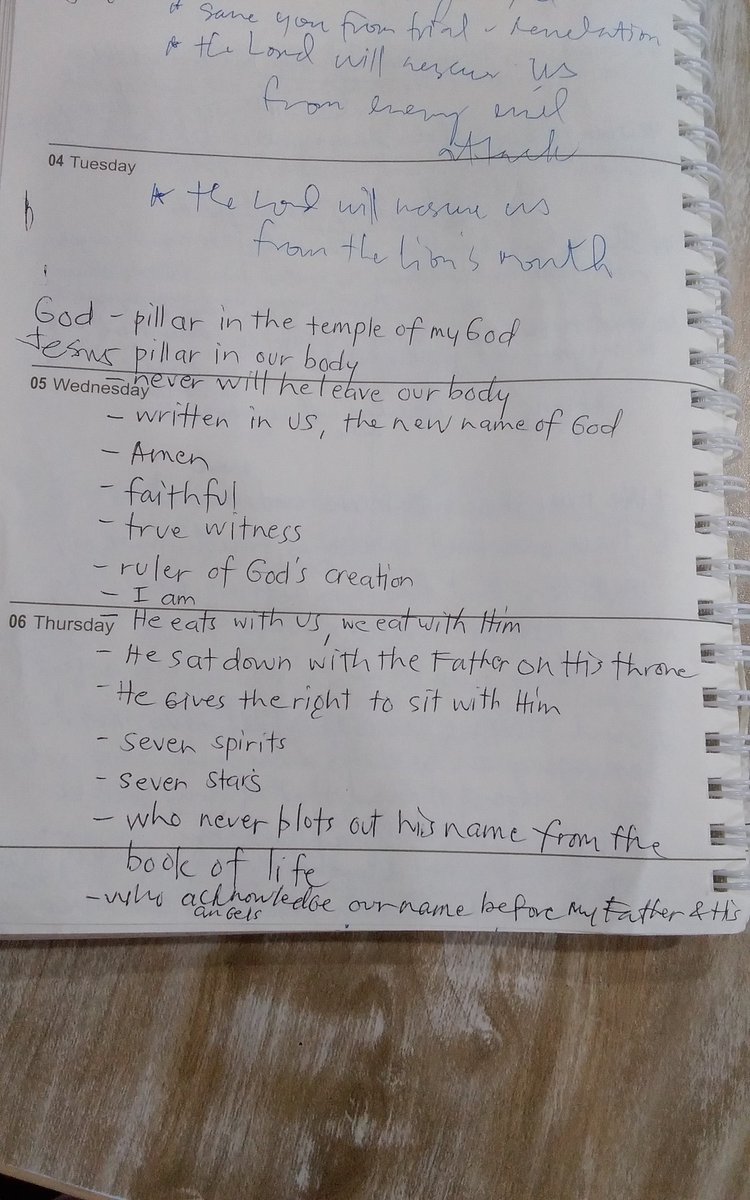 * save you from trial - revelation
* the Lord will rescue us
from enemy evil
attack
04 Tuesday
* the Lord will rescue us
from the lion's mouth
God - pillar in the temple of my God
Jesus pillar in our body
- never will he leave our body
05 Wednesday
- written in us, the new name of God
- Amen
- faithful
- true witness
- ruler of God's creation
- I am
06 Thursday
- He eats with us, we eat with Him
- He sat down with the Father on His throne
- He Gives the right to sit with Him
- seven spirits
- seven stars
- who never blots out his name from the
book of life
- who acknowledge our name before my Father & His
angels